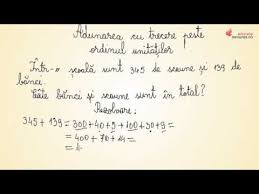 Adunarea cu trecere peste
ordinul unităților
Într-o școală sunt 345 de scaune și 139 de
bănci.
Câte bănci și scaune sunt în total?
Rezolvare:
345 + 139 = 300 + 40 + 5 + 100 + 30 + 9 =
= 400 + 70 + 14 =
= 4